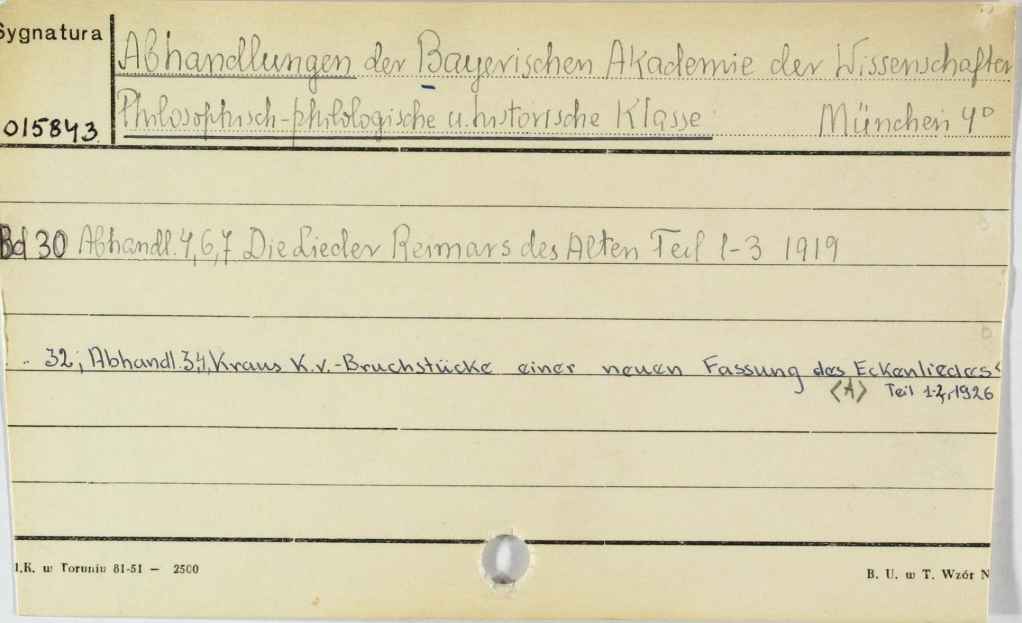 Sygnatura
Abhandlungen der Bayerischen Akademie der Wissenschaften
015843
Philosophisch-philologische u. historische Klasse München 4°
Bd 30 Abhandl. 4, 6, 7 Die Lieder Reimars des Alten Teil 1-3 1919
.. 32, Abhandl. 3,4, Kraus K.v.-Bruchstücke einer neuen Fassung des Eckenliedes
<A> Teil 1-2, 1926
I.K. w Toruniu 81-51 — 2500
B. U. w T. Wzór N